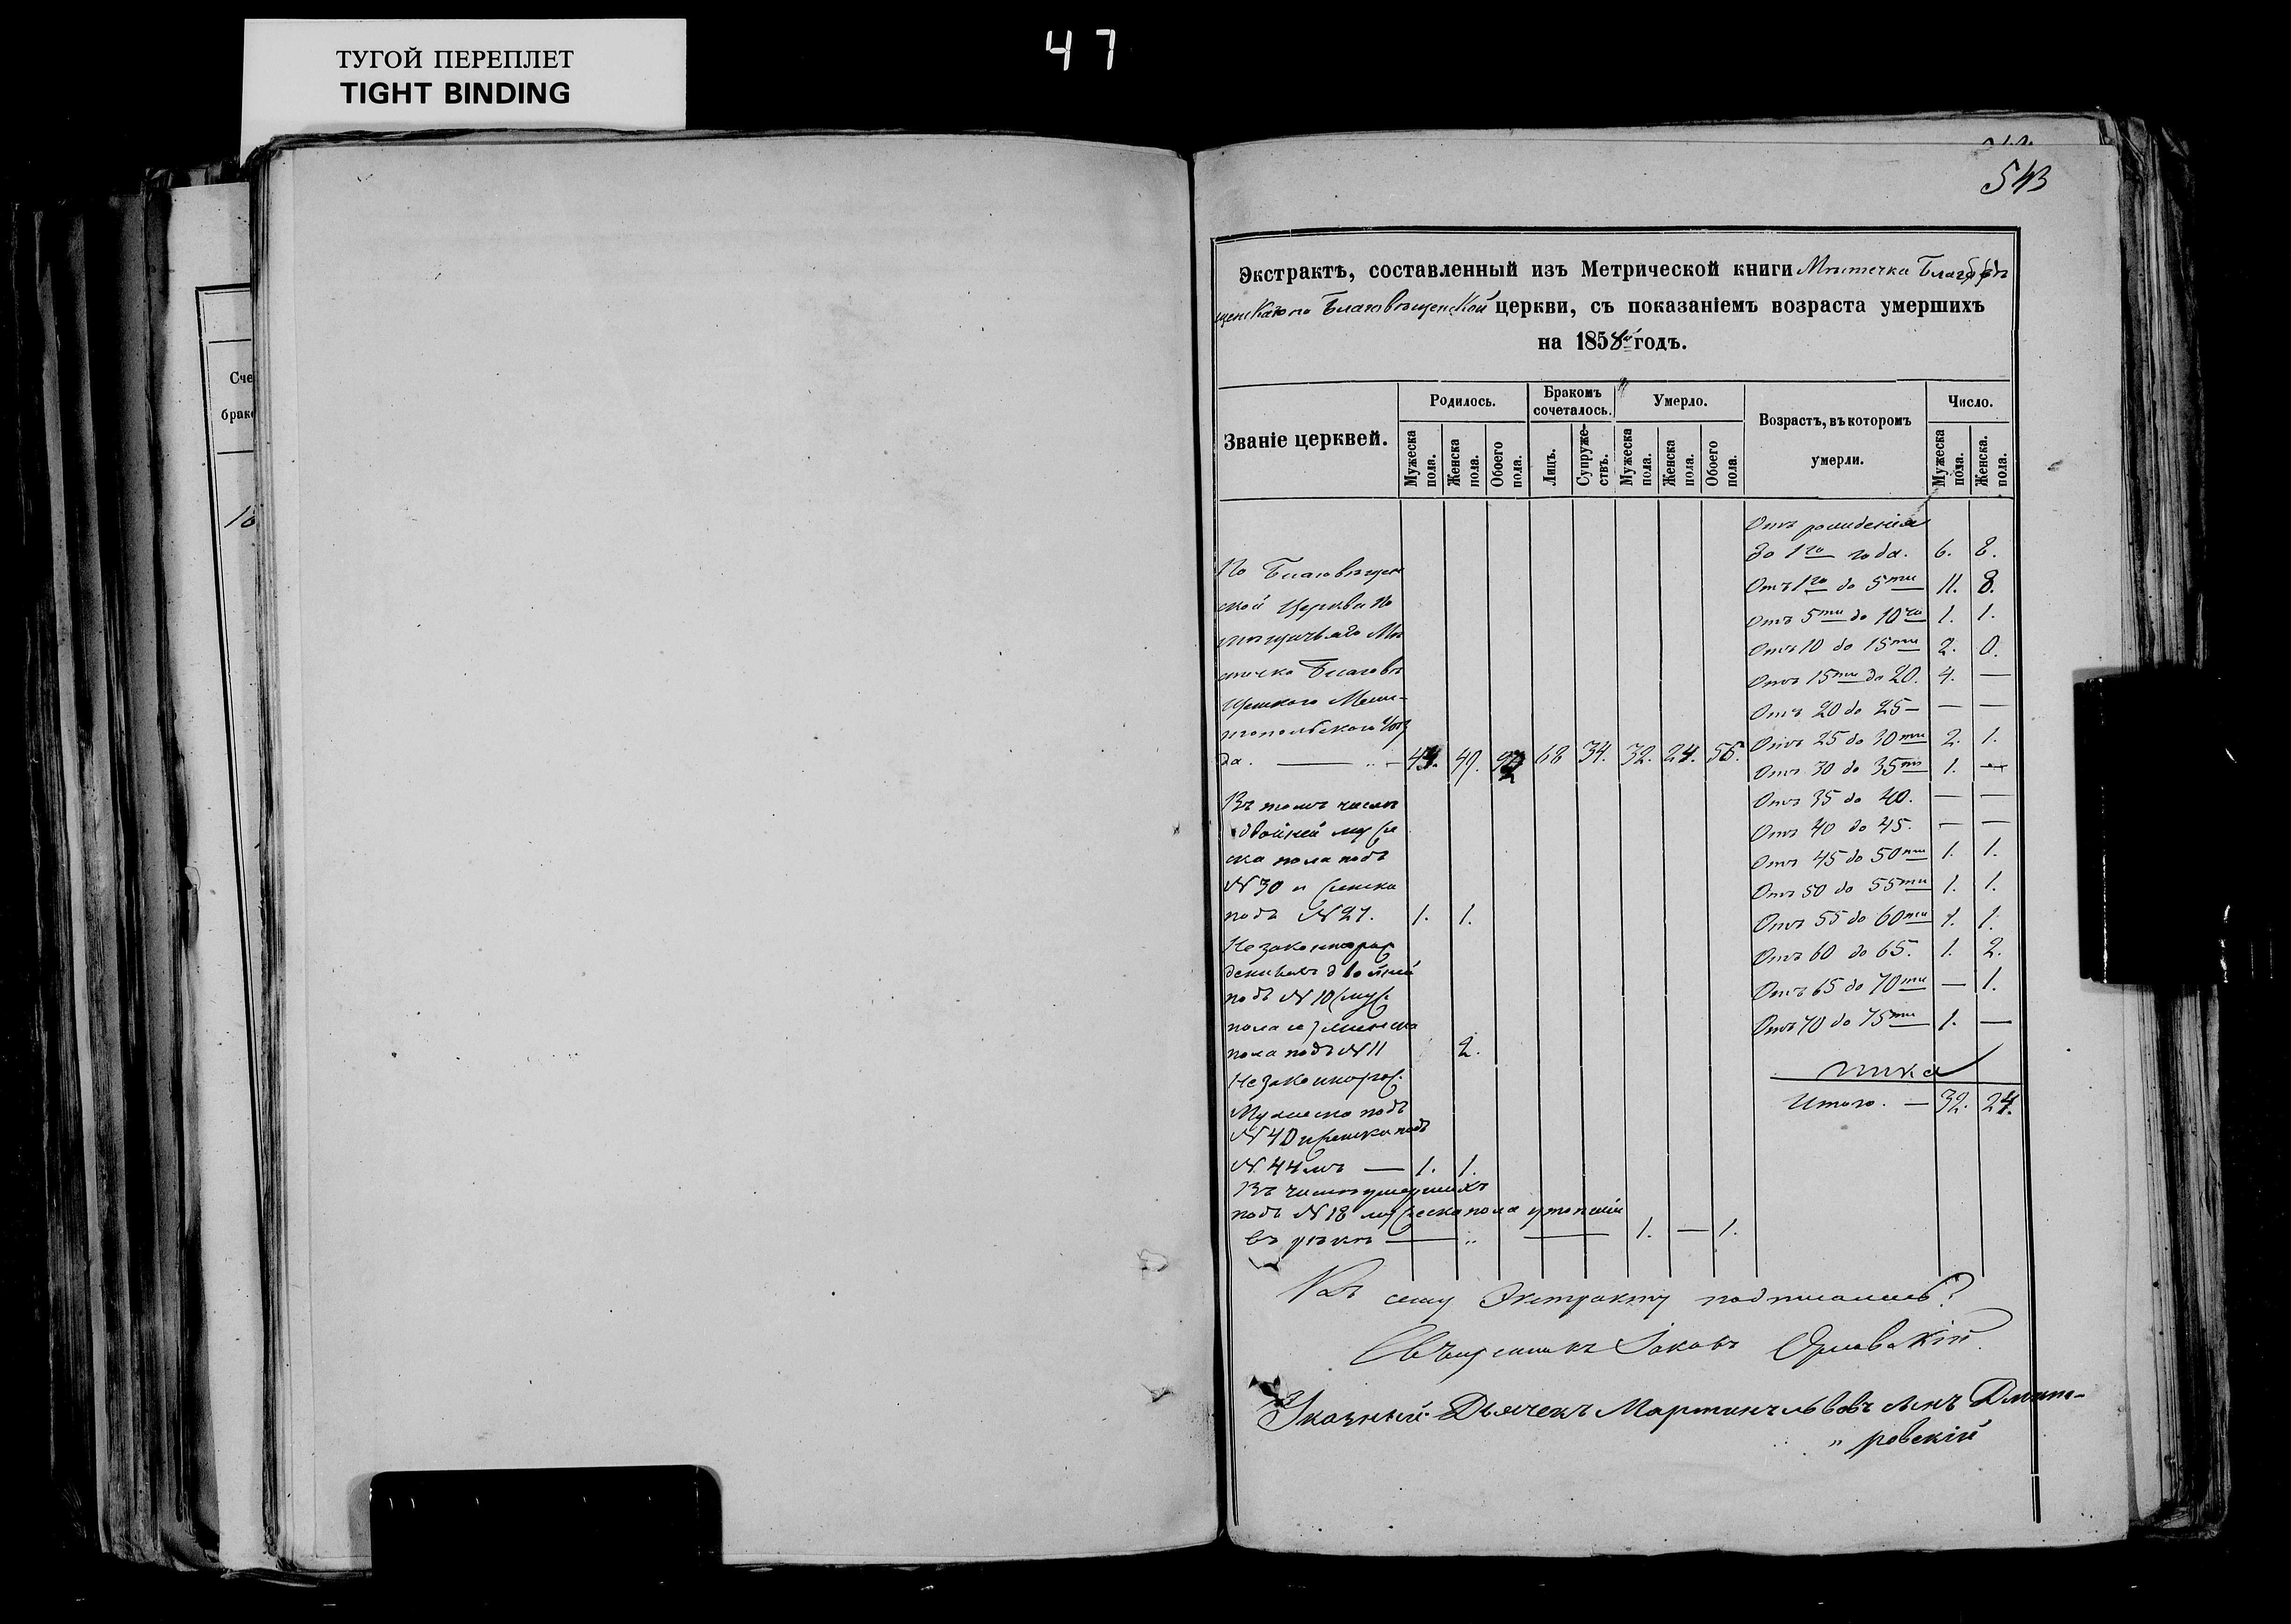 ТУГОЙ ПЕРЕПЛЕТ
TIGHT BINDING
47
543
Экстрактъ, составленный изъ Метрической книги Мѣстечка
Благовѣщенской церкви, съ показаніемъ возраста умершихъ
на 1858й годъ.
Сче
брако
10
Званіе церквей.
Родилось.
Бракомъ сочеталось.
Умерло.
Возрастъ, въ которомъ умерли.
Число.
Мужеска пола.
Женска пола.
Обоего пола.
Лицъ.
Супружествъ.
Мужеска пола.
Женска пола.
Обоего пола.
Мужеска пола.
Женска. пола.
По Благовѣщен
ской Церкви по
мѣщичьяго Мѣ
стечка Благовѣ
щенского Мели-
топольского Уѣз
да. — 49. 68 34. 32. 24. 56.
Въ томъ числѣ
двойней муже
ска пола подъ
№ 30 и женска
подъ № 27. 1. 1.
Незаконнорож
двойней
подъ № 10
пола и женска
пола подъ № 11 2.
Незаконнорож.
Мужеска подъ
№ 40 и женска подъ
№ 44мъ — 1. 1.
Въ числѣ умершихъ
подъ № 18 мужеска пола утопшій
въ рѣкѣ — 1. — 1.
Отъ рожденія
до 1го года. 6. 8.
Отъ 1го до 5ти 11. 8.
Отъ 5ти до 10ти 1. 1.
Отъ 10 до 15ти 2. 0.
Отъ 15ти до 20. 4. —
Отъ 20 до 25 — — —
Отъ 25 до 30ти 2. 1.
Отъ 30 до 35ти 1. —
Отъ 35 до 40. — —
Отъ 40 до 45. — —
Отъ 45 до 50ти 1. 1.
Отъ 50 до 55ти 1. 1.
Отъ 55 до 60ти 1. 1.
Отъ 60 до 65. 1. 2.
Отъ 65 до 70ти — 1.
Отъ 70 до 75ти 1. —
Итого. — 32. 24.
Къ сему Экстракту подписались
Священникъ Іаковъ Орловскій.
Указный Дьячекъ Мартинъ Львовъ сынъ Дмит-
ровскій